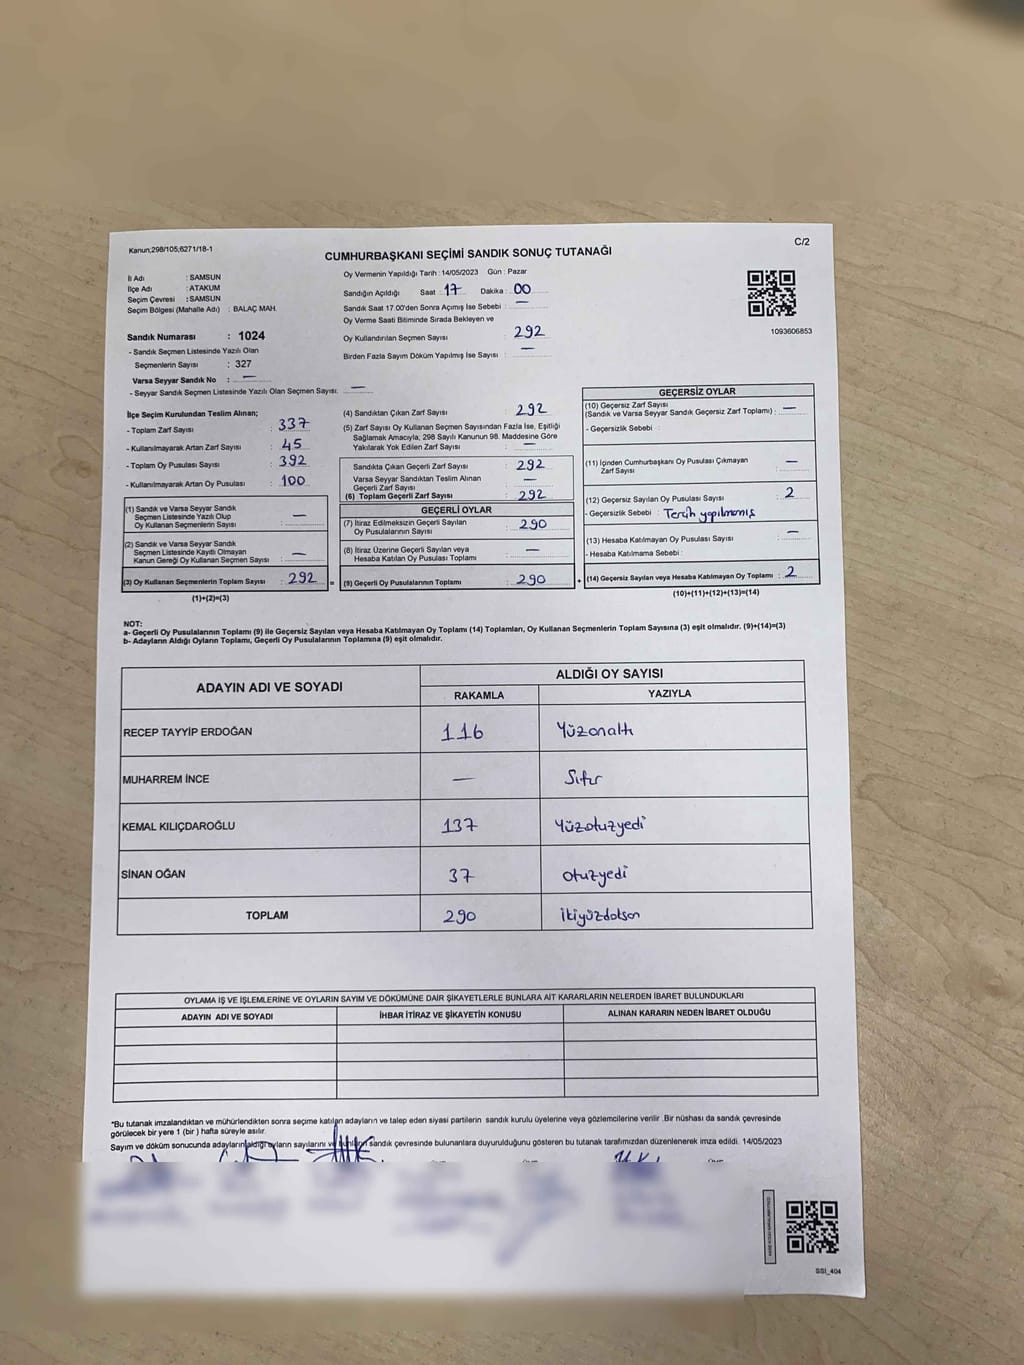 Kanun,298/105;6271/18-1
C/2
CUMHURBAŞKANI SEÇİMİ SANDIK SONUÇ TUTANAĞI
İl Adı : SAMSUN
İlçe Adı : ATAKUM
Seçim Çevresi : SAMSUN
Seçim Bölgesi (Mahalle Adı) : BALAÇ MAH.
Sandık Numarası : 1024
- Sandık Seçmen Listesinde Yazılı Olan
Seçmenlerin Sayısı : 327
Varsa Seyyar Sandık No : —
- Seyyar Sandık Seçmen Listesinde Yazılı Olan Seçmen Sayısı: —
Oy Vermenin Yapıldığı Tarih : 14/05/2023 Gün : Pazar
Sandığın Açıldığı Saat : 17 Dakika : 00
Sandık Saat 17:00'den Sonra Açılmış İse Sebebi : —
Oy Verme Saati Bitiminde Sırada Bekleyen ve
Oy Kullandırılan Seçmen Sayısı : 292
Birden Fazla Sayım Döküm Yapılmış İse Sayısı : —
1093606853
İlçe Seçim Kurulundan Teslim Alınan;
- Toplam Zarf Sayısı : 337
- Kullanılmayarak Artan Zarf Sayısı : 45
- Toplam Oy Pusulası Sayısı : 392
- Kullanılmayarak Artan Oy Pusulası : 100
(1) Sandık ve Varsa Seyyar Sandık
Seçmen Listesinde Yazılı Olup
Oy Kullanan Seçmenlerin Sayısı : —
(2) Sandık ve Varsa Seyyar Sandık
Seçmen Listesinde Kayıtlı Olmayan
Kanun Gereği Oy Kullanan Seçmen Sayısı : —
(3) Oy Kullanan Seçmenlerin Toplam Sayısı : 292 =
(1)+(2)=(3)
(4) Sandıktan Çıkan Zarf Sayısı : 292
(5) Zarf Sayısı Oy Kullanan Seçmen Sayısından Fazla İse, Eşitliği
Sağlamak Amacıyla, 298 Sayılı Kanunun 98. Maddesine Göre
Yakılarak Yok Edilen Zarf Sayısı : —
Sandıkta Çıkan Geçerli Zarf Sayısı : 292
Varsa Seyyar Sandıktan Teslim Alınan
Geçerli Zarf Sayısı : —
(6) Toplam Geçerli Zarf Sayısı : 292
GEÇERLİ OYLAR
(7) İtiraz Edilmeksizin Geçerli Sayılan
Oy Pusulalarının Sayısı : 290
(8) İtiraz Üzerine Geçerli Sayılan veya
Hesaba Katılan Oy Pusulası Toplamı : —
(9) Geçerli Oy Pusulalarının Toplamı : 290 +
GEÇERSİZ OYLAR
(10) Geçersiz Zarf Sayısı
(Sandık ve Varsa Seyyar Sandık Geçersiz Zarf Toplamı) : —
- Geçersizlik Sebebi :
(11) İçinden Cumhurbaşkanı Oy Pusulası Çıkmayan
Zarf Sayısı : —
(12) Geçersiz Sayılan Oy Pusulası Sayısı : 2
- Geçersizlik Sebebi : Tercih yapılmamış
(13) Hesaba Katılmayan Oy Pusulası Sayısı : —
- Hesaba Katılmama Sebebi :
(14) Geçersiz Sayılan veya Hesaba Katılmayan Oy Toplamı : 2
(10)+(11)+(12)+(13)=(14)
NOT:
a- Geçerli Oy Pusulalarının Toplamı (9) ile Geçersiz Sayılan veya Hesaba Katılmayan Oy Toplamı (14) Toplamları, Oy Kullanan Seçmenlerin Toplam Sayısına (3) eşit olmalıdır. (9)+(14)=(3)
b- Adayların Aldığı Oyların Toplamı, Geçerli Oy Pusulalarının Toplamına (9) eşit olmalıdır.
ADAYIN ADI VE SOYADI
ALDIĞI OY SAYISI
RAKAMLA YAZIYLA
RECEP TAYYİP ERDOĞAN 116 Yüzonaltı
MUHARREM İNCE — Sıfır
KEMAL KILIÇDAROĞLU 137 Yüzotuzyedi
SİNAN OĞAN 37 otuzyedi
TOPLAM 290 ikiyüzdoksan
OYLAMA İŞ VE İŞLEMLERİNE VE OYLARIN SAYIM VE DÖKÜMÜNE DAİR ŞİKAYETLERLE BUNLARA AİT KARARLARIN NELERDEN İBARET BULUNDUKLARI
ADAYIN ADI VE SOYADI İHBAR İTİRAZ VE ŞİKAYETİN KONUSU ALINAN KARARIN NEDEN İBARET OLDUĞU
*Bu tutanak imzalandıktan ve mühürlendikten sonra seçime katılan adayların ve talep eden siyasi partilerin sandık kurulu üyelerine veya gözlemcilerine verilir .Bir nüshası da sandık çevresinde
görülecek bir yere 1 (bir ) hafta süreyle asılır.
Sayım ve döküm sonucunda adayların aldığı oyların sayılarını ve sandık çevresinde bulunanlara duyurulduğunu gösteren bu tutanak tarafımızdan düzenlenerek imza edildi. 14/05/2023
SSI_404